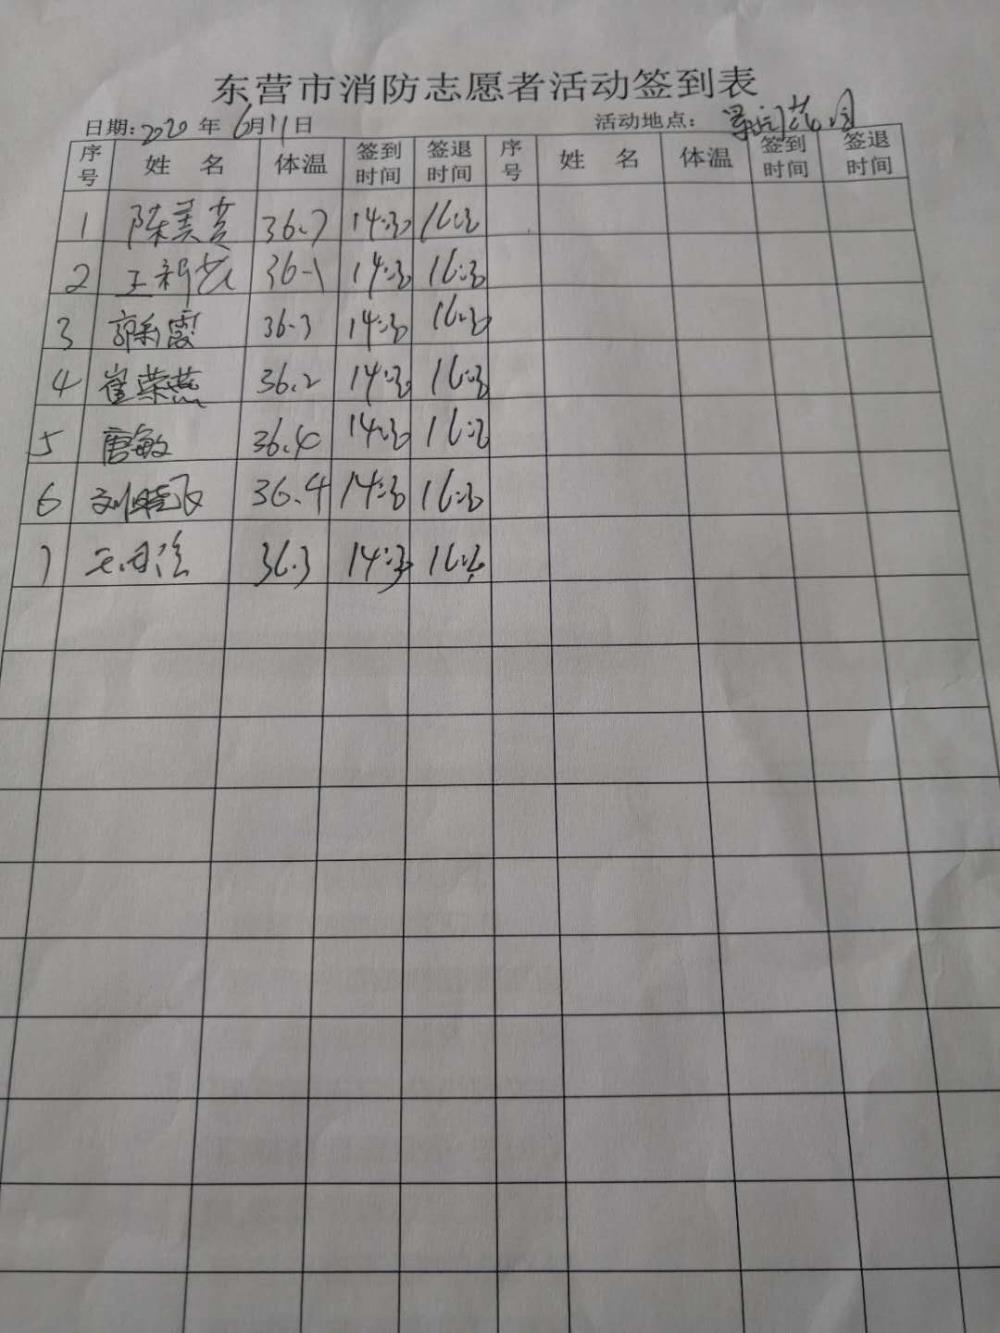 东营市消防志愿者活动签到表
日期:2020年6月11日 活动地点:
序号 姓名 体温 签到时间 签退时间 序号 姓名 体温 签到时间 签退时间
1 陈美芳 36.7 14:30 16:30
2 36.1 14:30 16:30
3 郭彩霞 36.3 14:30 16:30
4 崔荣燕 36.2 14:30 16:30
5 唐敏 36.4 14:30 16:30
6 刘晓飞 36.4 14:30 16:30
7 36.3 14:30 16:30